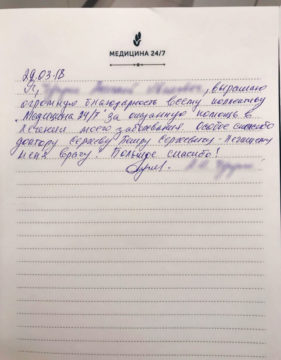 МЕДИЦИНА 24/7
29.03.18
Я, выражаю
огромную благодарность всему коллективу
"Медицина 24/7" за оказанную помощь в
лечении моего заболевания. Особое спасибо
доктору Сергееву Петру Сергеевичу - лечащему
меня врачу. Большое спасибо!